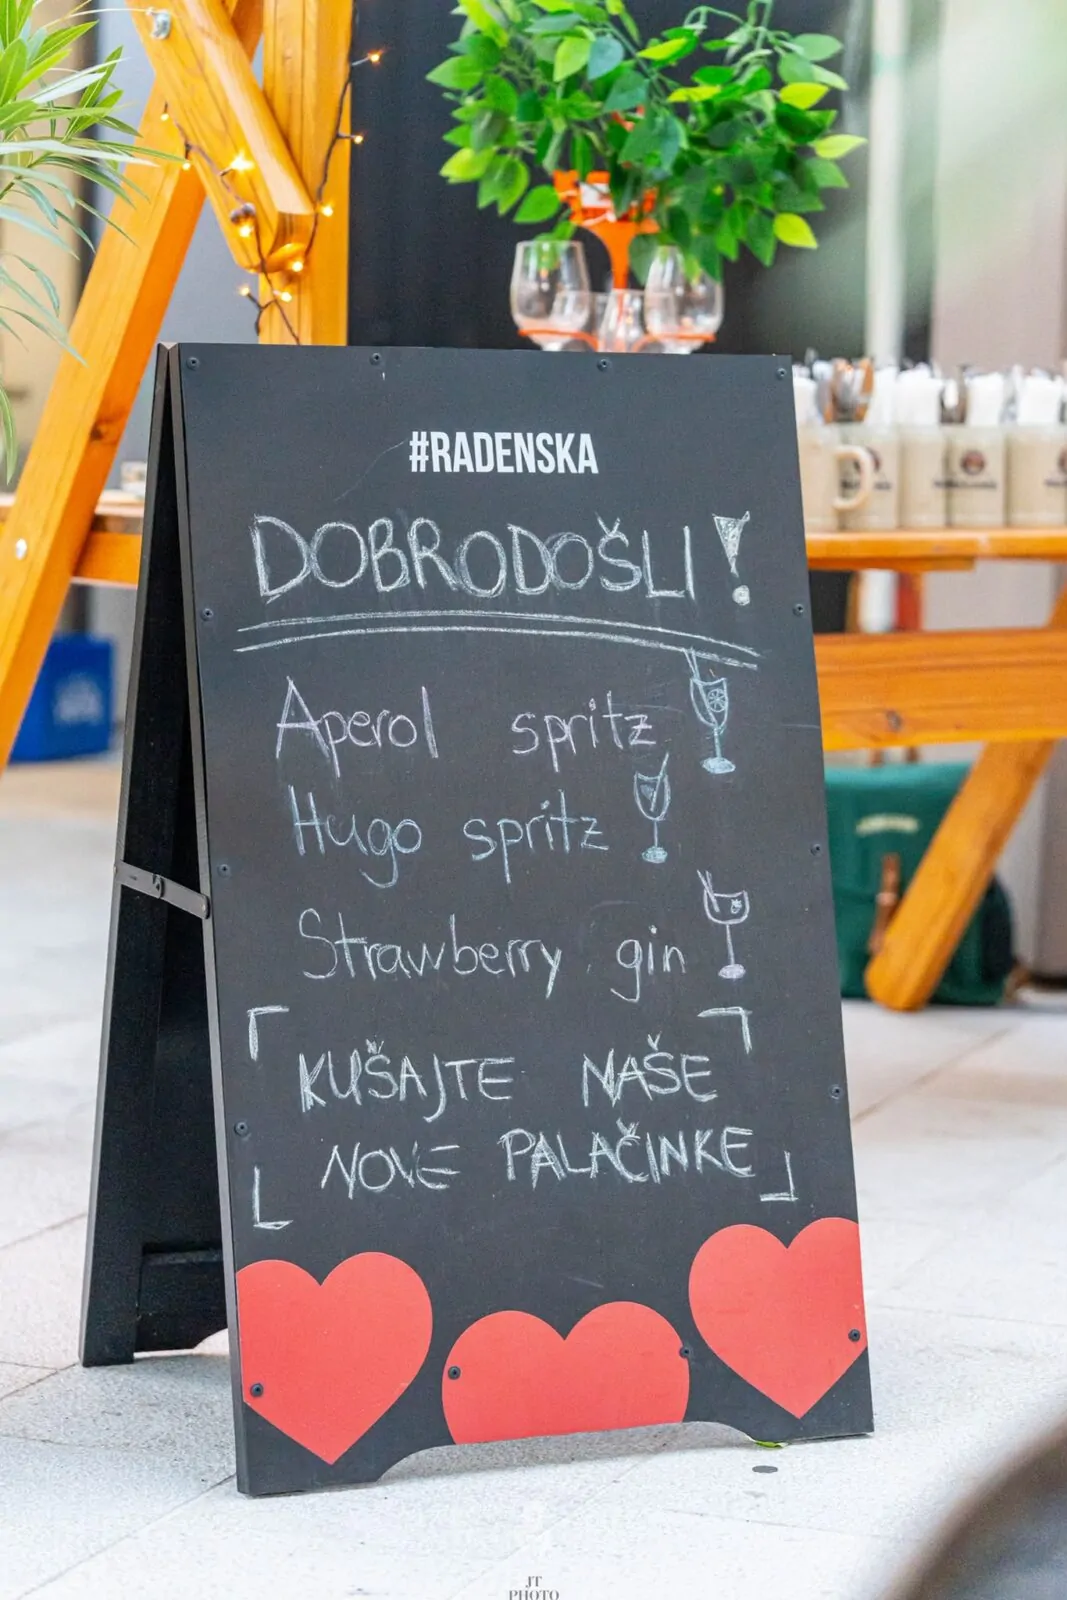 #RADENSKA
DOBRODOŠLI!
Aperol spritz
Hugo spritz
Strawberry gin
KUŠAJTE NAŠE
NOVE PALAČINKE
JT
PHOTO